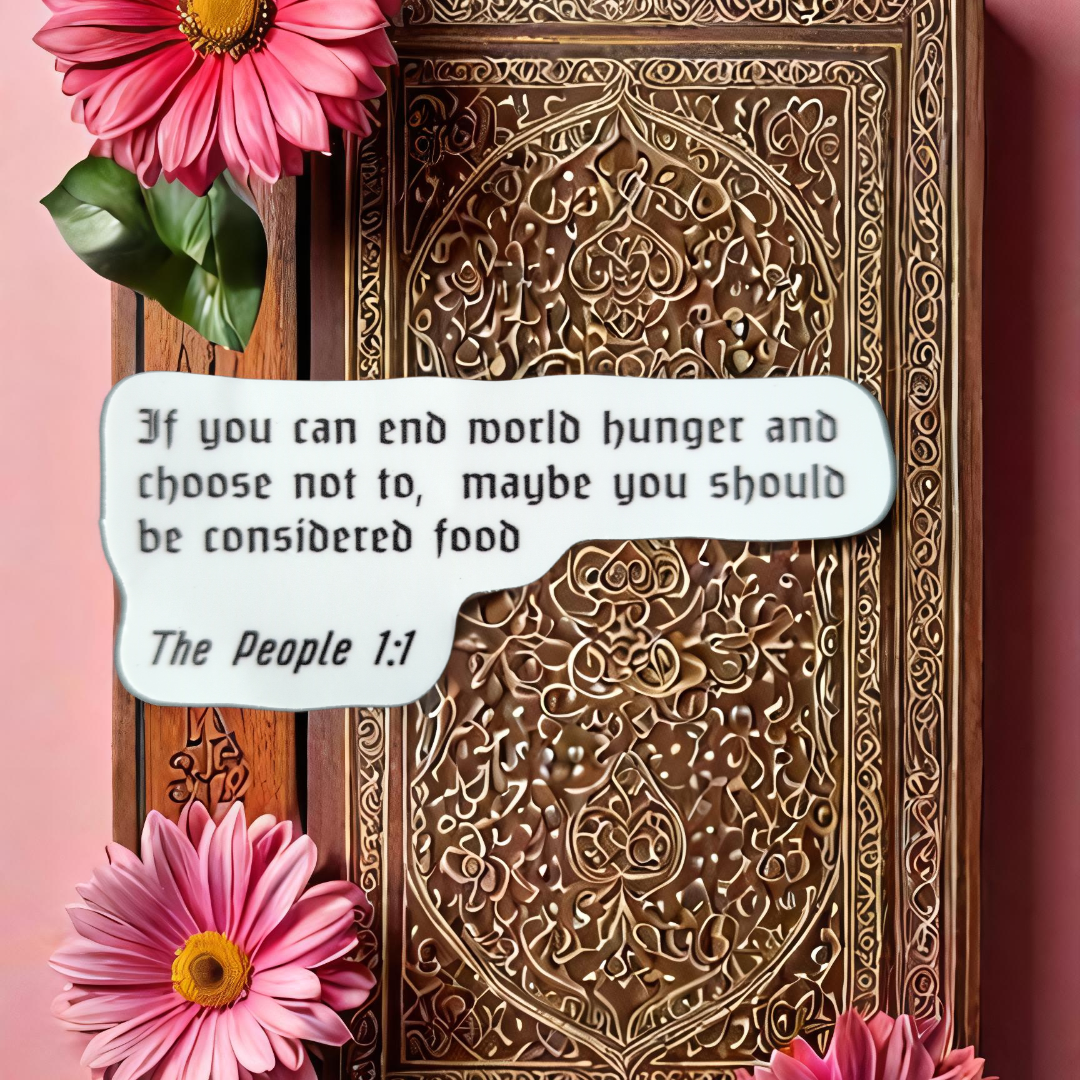 If you can end world hunger and
choose not to, maybe you should
be considered food
The People 1:1